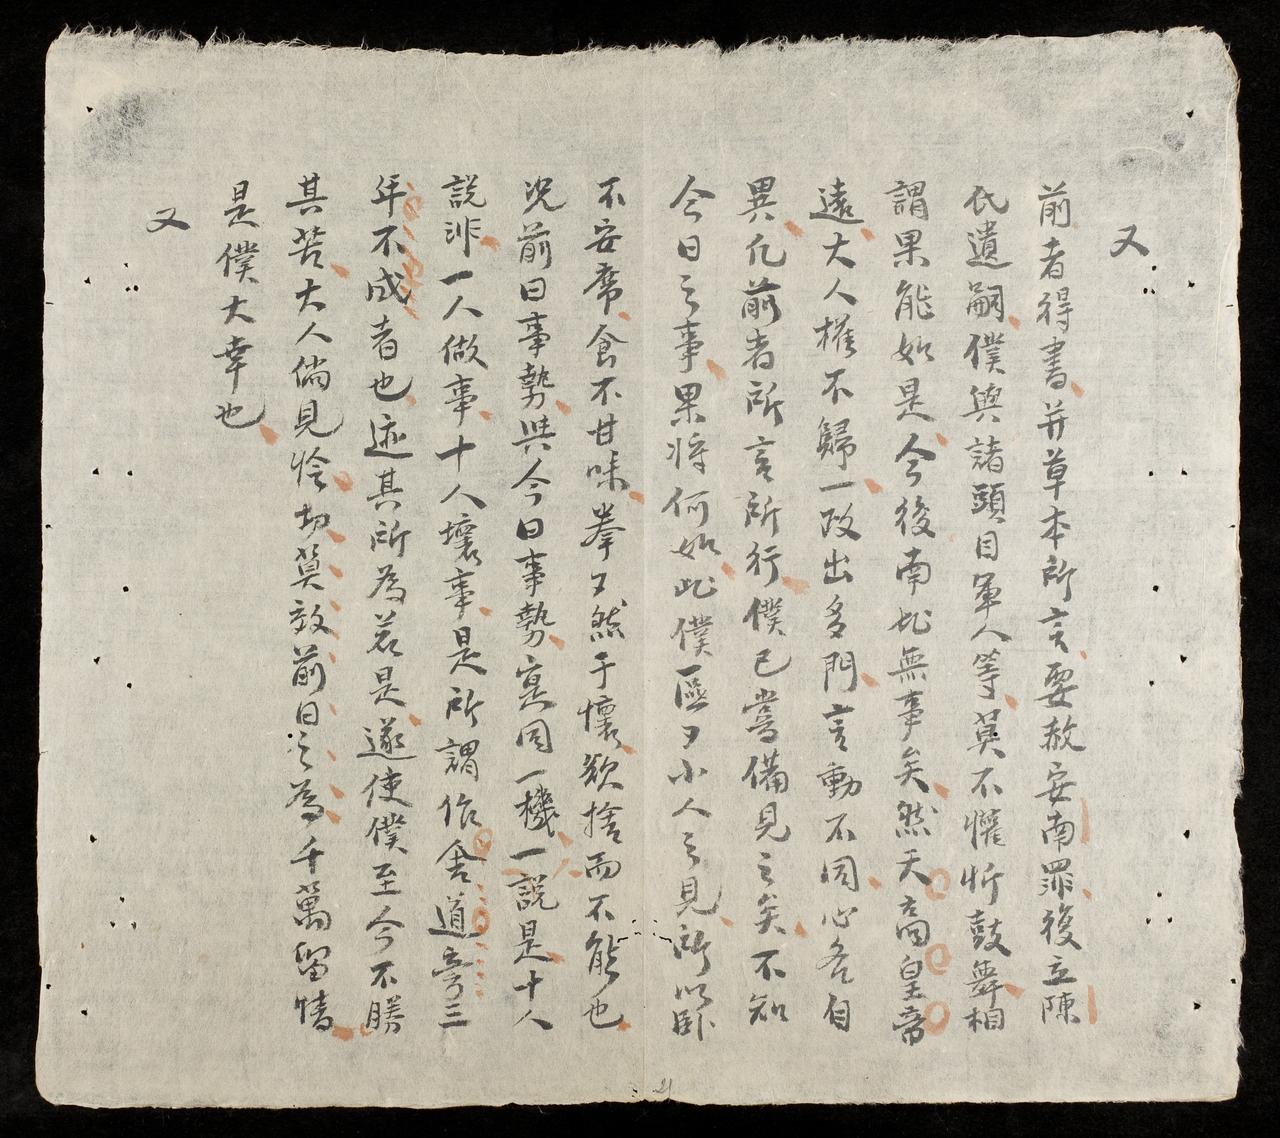 又
前者得書并草本所言要赦安南罪後立陳
氏遺嗣僕與諸頭目軍人等莫不懽忻鼓舞相
謂果能如是今後南北無事矣然天高皇帝
遠大人權不歸一政出多門言動不同心各自
異凡前者所言所行僕已嘗備見之矣不知
今日之事果将何如此僕區〻小人之見所以卧
不安席食不甘味拳〻然于懷欲捨而不能也
况前日事勢與今日事勢寔同一機一説是十人
説非一人做事十人壞事是所謂作舍道旁三
年不成者也迹其所為若是遂使僕至今不勝
其苦大人倘見怜切莫效前日之為千萬留情
是僕大幸也
又